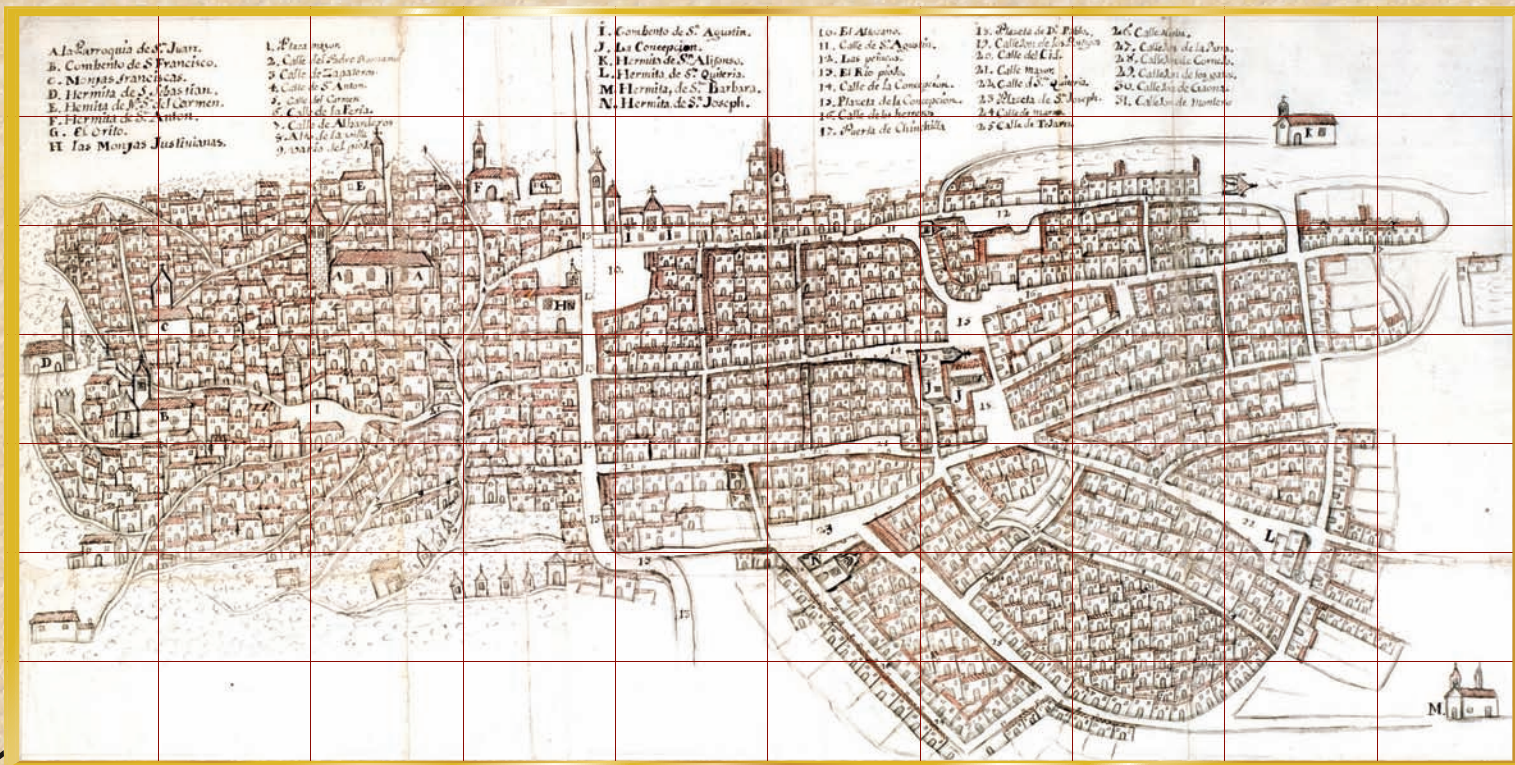 A. la Parroquia de Sn. Juan.
B. Combento de S Francisco.
C. Monjas franciscas.
D. Hermita de S. Sebastian.
E. Hemita de Na. Sa. del Carmen.
F. Hermita de Sn. Anton.
G. El Orito.
H las Monjas Justinianas.
1. Plaza mayor
2. Calle del Padre Romano
3 Calle de Zapateros
4. Calle de Sn. Anton.
5. Calle del Carmen
6. Calle de la Feria.
7. Calle de Albarderos
8. Alto de la villa
I. Combento de Sn. Agustin.
J. La Concepcion.
K. Hermita de Sn. Alifonso.
L. Hermita de Sa. Quiteria.
M. Hermita, de Sa. Barbara.
N. Hermita, de Sn. Joseph.
10. El Altozano.
11. Calle de Sn. Agustin.
12. Las peñicas.
13. El Rio piojo.
14. Calle de la Concepcion.
15. Plazeta de la Concepcion.
16. Calle de los herreros
17. Puerta de Chinchilla
18. Plazeta de Dn. Pablo.
19. Callejon de las
20. Calle del Cid.
21. Calle mayor
22 Calle de Sa. Quiteria.
23 Plazeta de Sn. Joseph.
24 Calle de
25 Calle de Tejares
26. Calle
27. Callejon de la Parra.
28. Callejon de Cornejo.
29. Callejon de los gatos.
30. Callejon de Gaona.
31. Callejon de Montero
K
E
F
G
I I
12
11
10.
A A
H
C
15
D
14
14
J
J
J
B
1
5
18.
24
22
L
13
23
N
13
13
M.